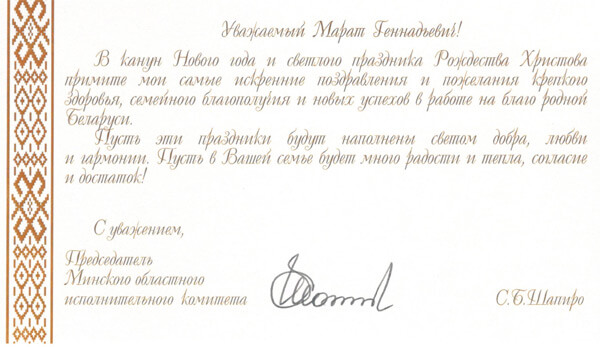 Уважаемый Марат Геннадьевич!
В канун Нового года и светлого праздника Рождества Христова
примите мои самые искренние поздравления и пожелания крепкого
здоровья, семейного благополучия и новых успехов в работе на благо родной
Беларуси.
Пусть эти праздники будут наполнены светом добра, любви
и гармонии. Пусть в Вашей семье будет много радости и тепла, согласие
и достаток!
С уважением,
Председатель
Минского областного
исполнительного комитета С.Б.Шапиро